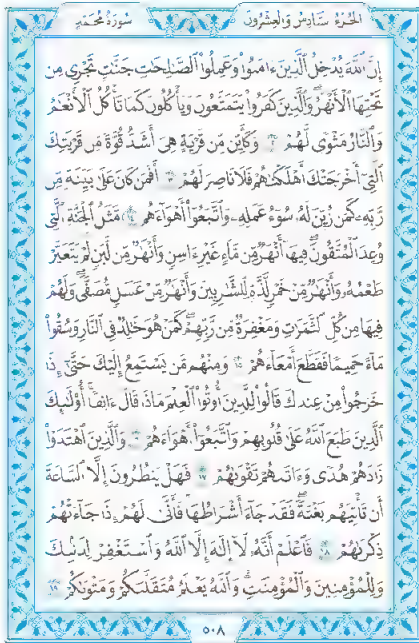 سُورَةُ مُحَمَّدٍ
الجُزءُ سَادِسُ وَالعِشرُونَ
إِنَّ ٱللَّهَ يُدْخِلُ ٱلَّذِينَ ءَامَنُوا۟ وَعَمِلُوا۟ ٱلصَّـٰلِحَـٰتِ جَنَّـٰتٍ تَجْرِى مِن
تَحْتِهَا ٱلْأَنْهَـٰرُ وَٱلَّذِينَ كَفَرُوا۟ يَتَمَتَّعُونَ وَيَأْكُلُونَ كَمَا تَأْكُلُ ٱلْأَنْعَـٰمُ
وَٱلنَّارُ مَثْوًى لَّهُمْ ۝ وَكَأَيِّن مِّن قَرْيَةٍ هِىَ أَشَدُّ قُوَّةً مِّن قَرْيَتِكَ
ٱلَّتِىٓ أَخْرَجَتْكَ أَهْلَكْنَـٰهُمْ فَلَا نَاصِرَ لَهُمْ ۝ أَفَمَن كَانَ عَلَىٰ بَيِّنَةٍ مِّن
رَّبِّهِۦ كَمَن زُيِّنَ لَهُۥ سُوٓءُ عَمَلِهِۦ وَٱتَّبَعُوٓا۟ أَهْوَآءَهُم ۝١٤ مَّثَلُ ٱلْجَنَّةِ ٱلَّتِى
وُعِدَ ٱلْمُتَّقُونَ فِيهَآ أَنْهَـٰرٌ مِّن مَّآءٍ غَيْرِ ءَاسِنٍ وَأَنْهَـٰرٌ مِّن لَّبَنٍ لَّمْ يَتَغَيَّرْ
طَعْمُهُۥ وَأَنْهَـٰرٌ مِّنْ خَمْرٍ لَّذَّةٍ لِّلشَّـٰرِبِينَ وَأَنْهَـٰرٌ مِّنْ عَسَلٍ مُّصَفًّى وَلَهُمْ
فِيهَا مِن كُلِّ ٱلثَّمَرَٰتِ وَمَغْفِرَةٌ مِّن رَّبِّهِمْ كَمَنْ هُوَ خَـٰلِدٌ فِى ٱلنَّارِ وَسُقُوا۟
مَآءً حَمِيمًا فَقَطَّعَ أَمْعَآءَهُمْ ۝١٥ وَمِنْهُم مَّن يَسْتَمِعُ إِلَيْكَ حَتَّىٰٓ إِذَا
خَرَجُوا۟ مِنْ عِندِكَ قَالُوا۟ لِلَّذِينَ أُوتُوا۟ ٱلْعِلْمَ مَاذَا قَالَ ءَانِفًا أُو۟لَـٰٓئِكَ
ٱلَّذِينَ طَبَعَ ٱللَّهُ عَلَىٰ قُلُوبِهِمْ وَٱتَّبَعُوٓا۟ أَهْوَآءَهُمْ ۝ وَٱلَّذِينَ ٱهْتَدَوْا۟
زَادَهُمْ هُدًى وَءَاتَىٰهُمْ تَقْوَىٰهُمْ ۝١٧ فَهَلْ يَنظُرُونَ إِلَّا ٱلسَّاعَةَ
أَن تَأْتِيَهُم بَغْتَةً فَقَدْ جَآءَ أَشْرَاطُهَا فَأَنَّىٰ لَهُمْ إِذَا جَآءَتْهُمْ
ذِكْرَىٰهُمْ ۝١٨ فَٱعْلَمْ أَنَّهُۥ لَآ إِلَـٰهَ إِلَّا ٱللَّهُ وَٱسْتَغْفِرْ لِذَنۢبِكَ
وَلِلْمُؤْمِنِينَ وَٱلْمُؤْمِنَـٰتِ وَٱللَّهُ يَعْلَمُ مُتَقَلَّبَكُمْ وَمَثْوَىٰكُمْ ۝١٩
٥٠٨